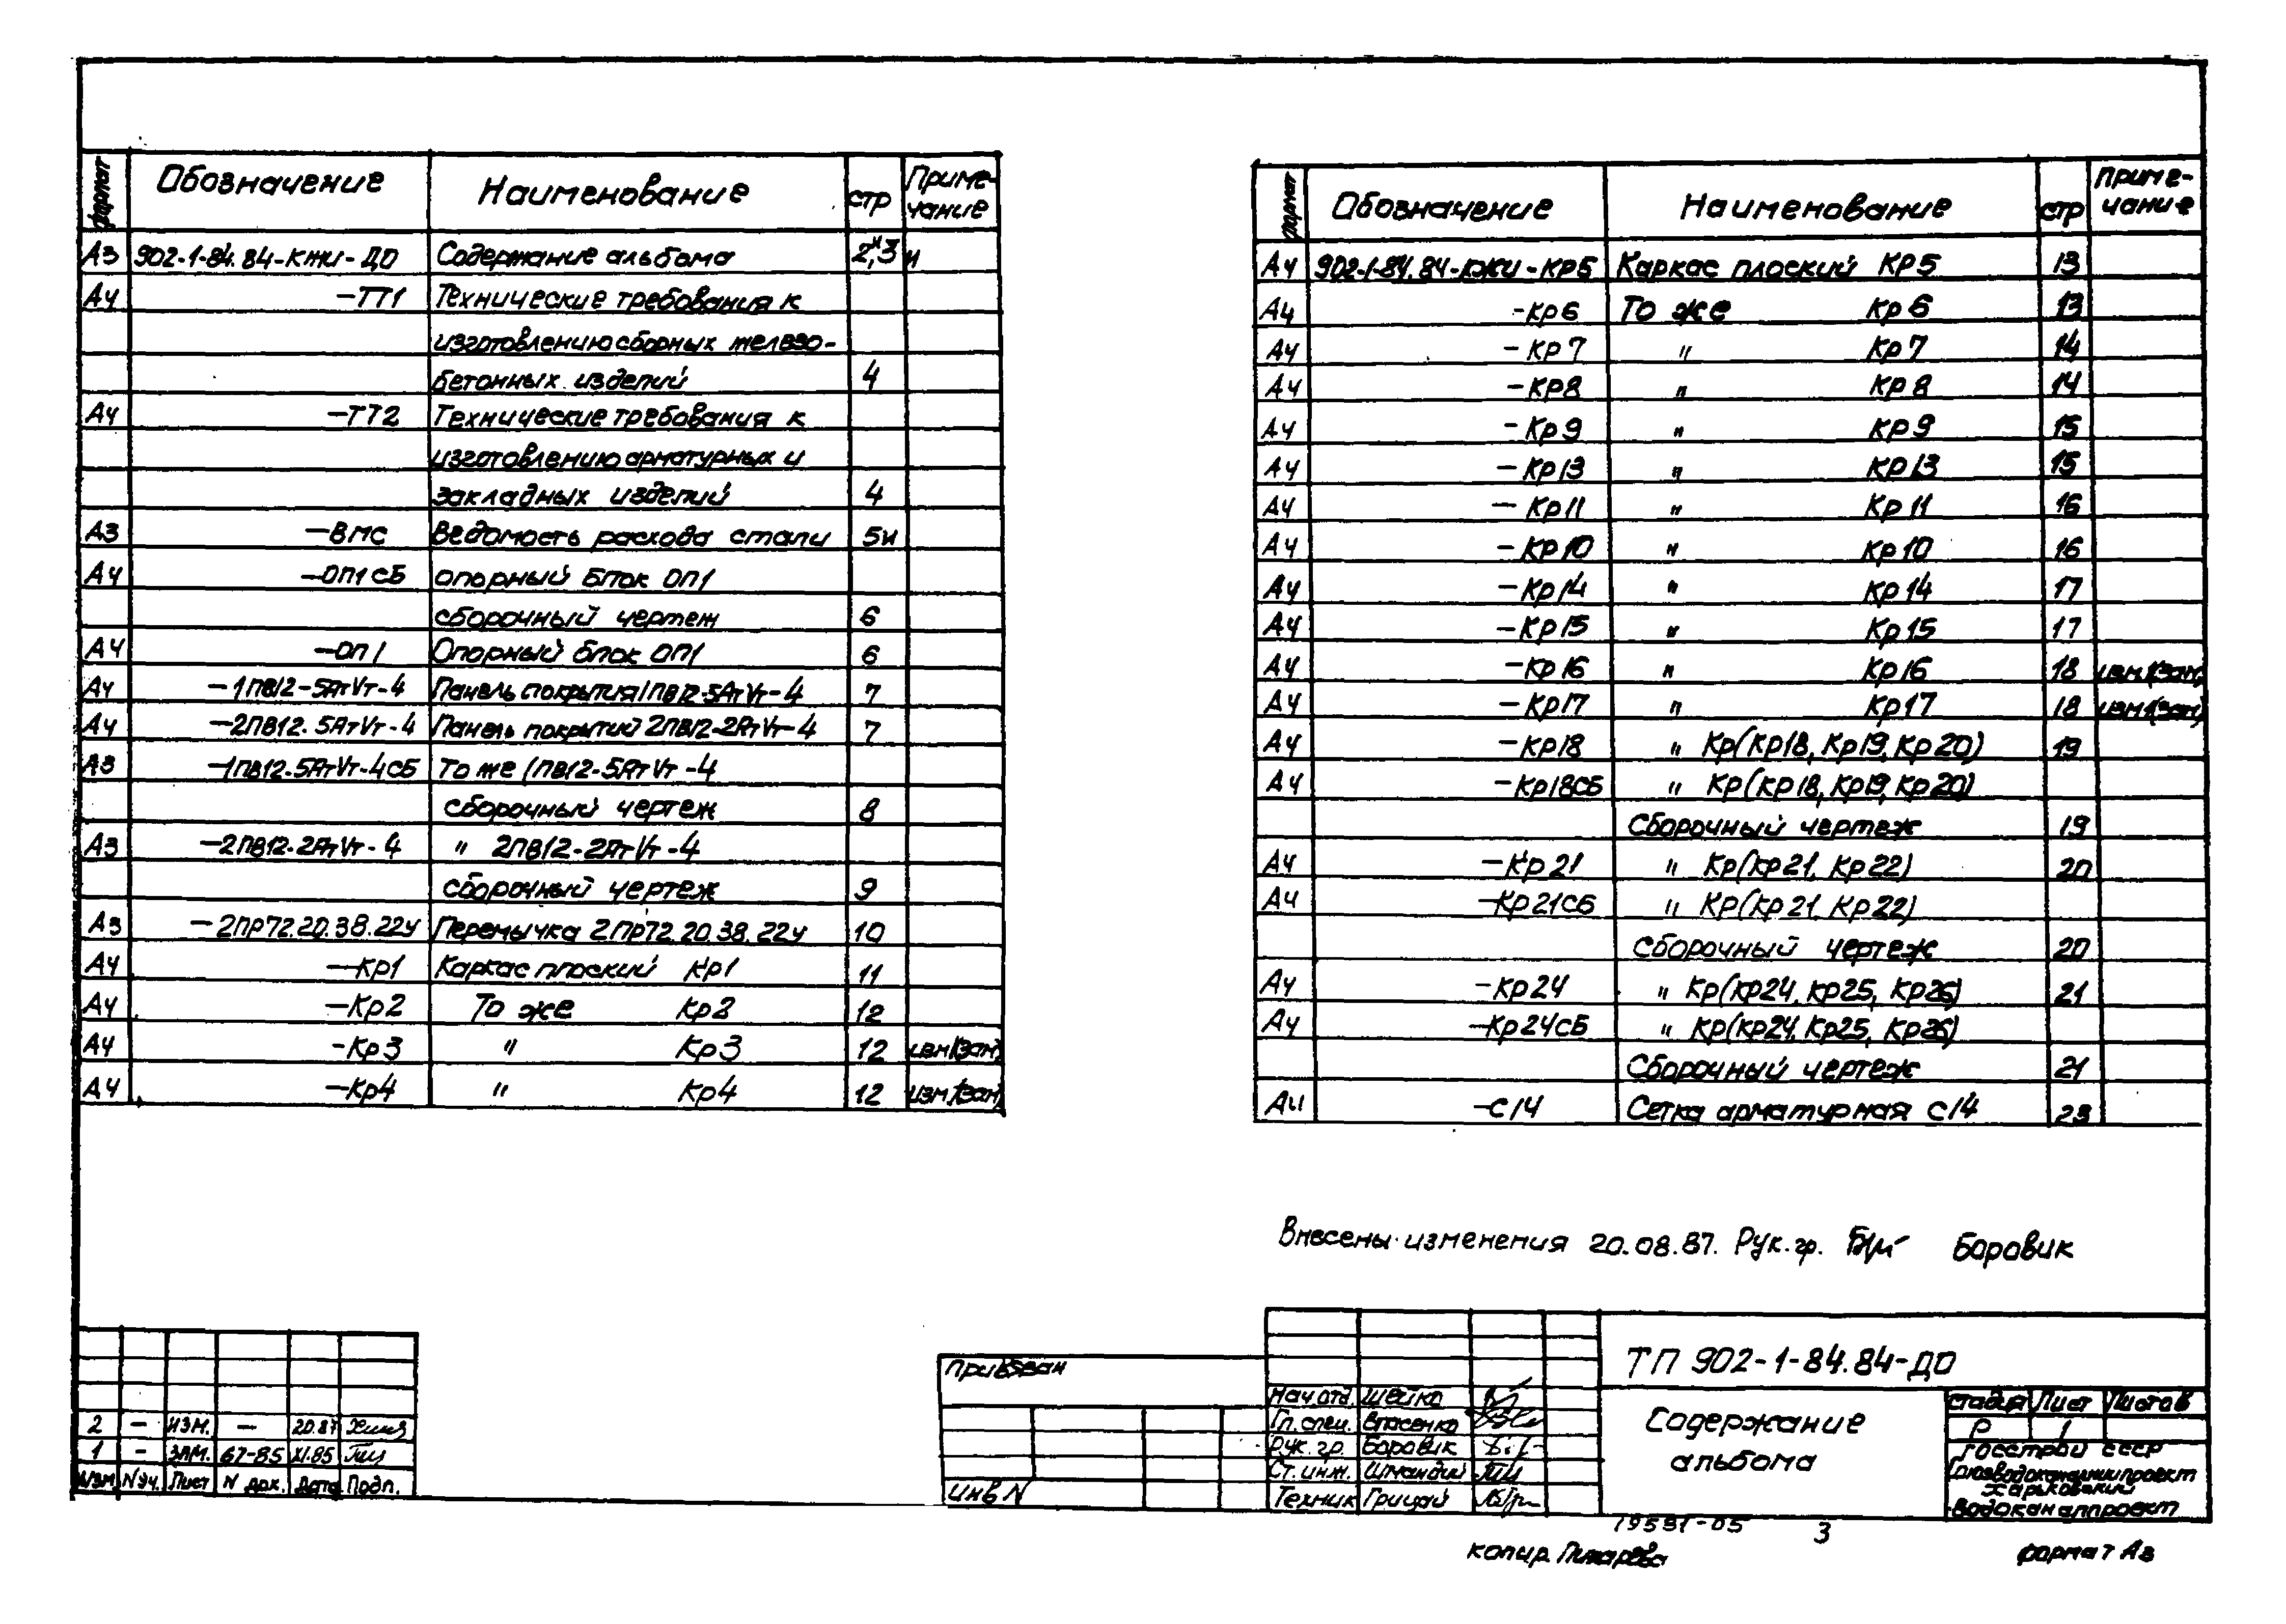 формат Обозначение Наименование стр Приме-
чание
А3 902-1-84.84-КЖИ-ДО Содержание альбома 2,и3 и
А4 -ТТ1 Технические требования к
изготовлению сборных железо-
бетонных изделий 4
А4 -ТТ2 Технические требования к
изготовлению арматурных и
закладных изделий 4
А3 -ВМС Ведомость расхода стали 5и
А4 -ОП1СБ опорный блок ОП1
сборочный чертеж 6
А4 -ОП1 Опорный блок ОП1 6
А4 -1ПВ12-5АтVт-4 Панель покрытия 1ПВ12-5АтVт-4 7
А4 -2ПВ12.5АтVт-4 Панель покрытий 2ПВ12-2АтVт-4 7
А3 -1ПВ12-5АтVт-4СБ То же 1ПВ12-5АтVт-4
сборочный чертеж 8
А3 -2ПВ12-2АтVт-4 " 2ПВ12-2АтVт-4
сборочный чертеж 9
А3 -2ПР72.20.38.22у Перемычка 2ПР72.20.38.22у 10
А4 -Кр1 Каркас плоский Кр1 11
А4 -Кр2 То же Кр2 12
А4 -Кр3 " Кр3 12 изм1(зам)
А4 -Кр4 " Кр4 12 изм1(зам)
формат Обозначение Наименование стр Приме-
чание
А4 902-1-84.84-КЖИ-КР5 Каркас плоский КР5 13
А4 -Кр6 То же Кр6 13
А4 -Кр7 " Кр7 14
А4 -КР8 " КР8 14
А4 -Кр9 " КР9 15
А4 -Кр13 " КР13 15
А4 -Кр11 " Кр11 16
А4 -КР10 " Кр10 16
А4 -Кр14 " Кр14 17
А4 -Кр15 " Кр15 17
А4 -Кр16 " Кр16 18 изм1(зам)
А4 -Кр17 " Кр17 18 изм1(зам)
А4 -Кр18 " Кр(Кр18, Кр19, Кр20) 19
А4 -Кр18СБ " Кр(Кр18, Кр19, Кр20)
Сборочный чертеж 19
А4 -Кр21 " Кр(Кр21, Кр22) 20
А4 -Кр21СБ " Кр(Кр21, Кр22)
Сборочный чертеж 20
А4 -Кр24 " Кр(Кр24, Кр25, Кр26) 21
А4 -Кр24СБ " Кр(Кр24, Кр25, Кр26)
Сборочный чертеж 21
А4 -С14 Сетка арматурная С14 23
Внесены изменения 20.08.87. Рук.гр. Боровик
2 - ИЗМ. - 20.87
1 - ЗАМ. 67-85 XI.85
Изм Nуч. Лист N док. Дата Подп.
Привязан
Инв N
Нач.отд. Шейко
Гл.спец. Власенко
Рук.гр. Боровик
Ст.инж. Шмандий
Техник Грицай
ТП 902-1-84.84-ДО
Содержание
альбома
Стадия Лист Листов
Р 1
Госстрой СССР
Союзводоканалниипроект
Харьковский
Водоканалпроект
19531-05 3
копир. формат А3